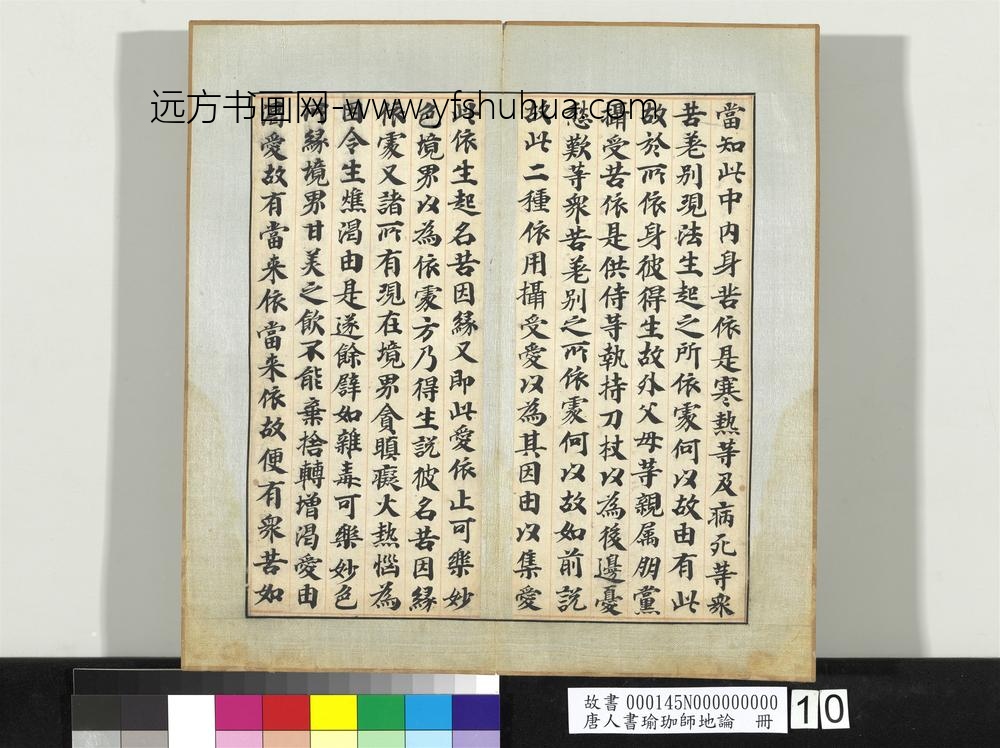 當知此中内身苦依是寒熱等及病死等衆
苦差别現法生起之所依處何以故由有此
故於所依身彼得生故外父母等親属朋黨
攝受苦依是供侍等執持刀杖以為後邊憂
愁歎等衆苦差别之所依處何以故如前説
故此二種依用攝受愛以為其因由以集愛
依生起名苦因緣又即此愛依止可樂妙
色境界以為依處方乃得生説彼名苦因緣
依處又諸所有現在境界貪瞋癡火熱惱為
令生燋渴由是遂餘辟如雜毒可樂妙色
緣境界甘美之飲不能棄捨轉增渴愛由
愛故有當来依當来依故便有衆苦如
远方书画网-www.yfshuhua.com
故書 000145N000000000
唐人書瑜珈師地論 冊
10